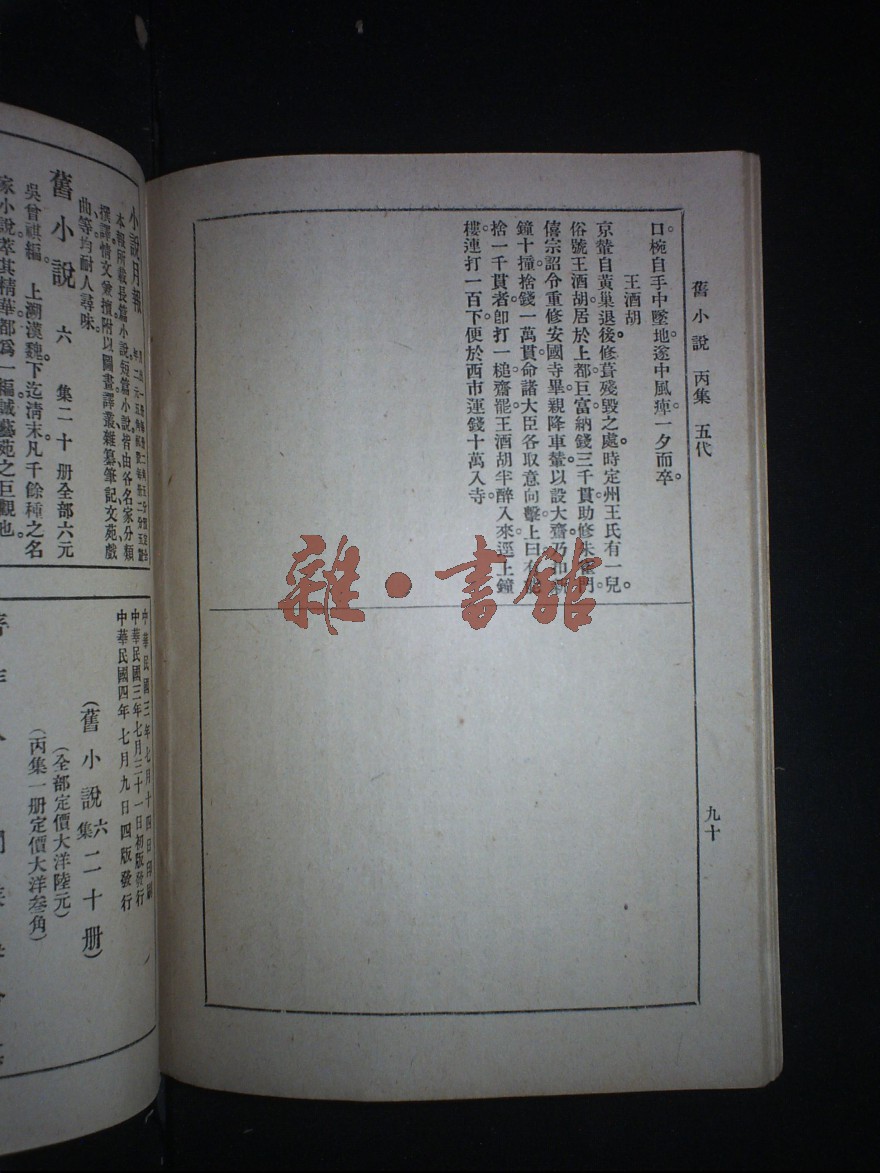 舊小說 丙集 五代
口椀自手中墜地遂中風痺一夕而卒。
王酒胡
京輦自黃巢退後修葺殘毀之處時定州王氏有一兒
俗號王酒胡居於上都巨富納錢三千貫助修朱雀門
僖宗詔令重修安國寺畢親降車輦以設大齋乃扣新
鐘十撞捨錢一萬貫命諸大臣各取意向擊上曰有能
捨一千貫者卽打一槌齋罷王酒胡半醉入來逕上鐘
樓連打一百下便於西市運錢十萬入寺。
九十
雜·書館
小說月報
本報所載長篇小說短篇小說皆由各名家分類
撰譯情文兼擅附以圖畫譯叢雜纂筆記文苑戲
曲等均耐人尋味。
舊小說 六集二十册全部六元
吳曾祺編。上溯漢魏下迄清末凡千餘種之名
家小說萃其精華都爲一編誠藝苑之巨觀也。
中華民國三年七月十四日印刷
中華民國三年七月三十一日初版發行
中華民國四年七月九日四版發行
(舊小說六集二十册)
(全部定價大洋陸元)
(丙集一册定價大洋叁角)